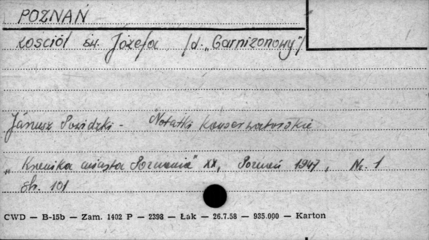 POZNAŃ
kościół św. Józefa (d. „Garnizonowy")
Janusz Powidzki - Notatki konserwatorskie
„Kronika miasta Poznania" XX, Poznań 1947, Nr. 1
str. 101
CWD — B-15b — Zam. 1402 P — 2398 — Łak — 26.7.58 — 935.000 — Karton